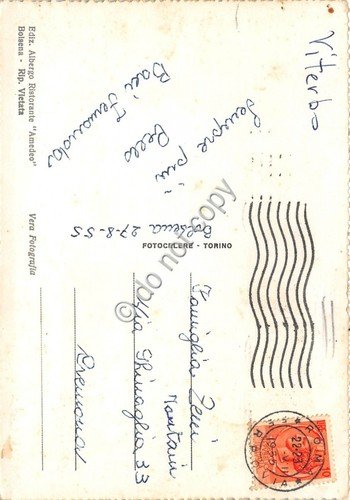 Viterbo
Sempre più
bello
Baci Fernanda
Bolsena 27-8-55
Ediz. Albergo Ristorante "Amedeo"
Bolsena - Rip. Vietata
Vera Fotografia
FOTOCELERE - TORINO
Famiglia
Via Ghinaglia 33
Cremona
ROMA
FERROVIA
do not copy